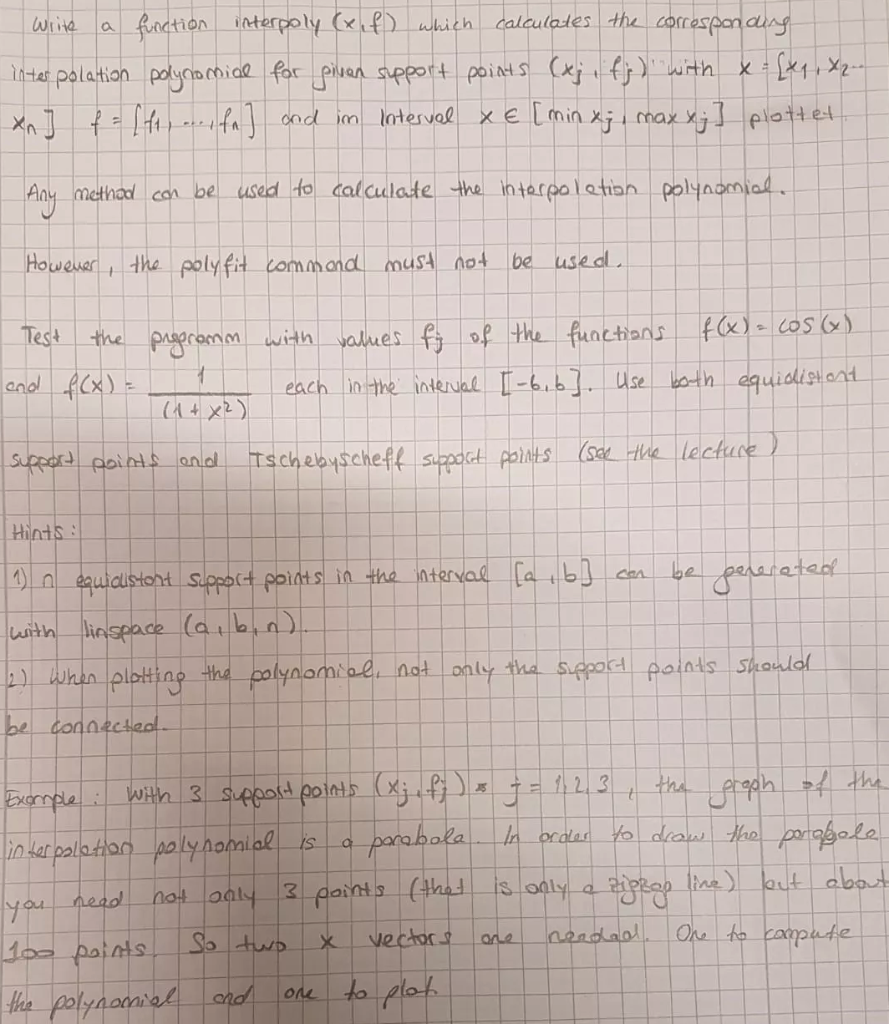 Write a function interpoly (x,f) which calculates the corresponding
interpolation polynomial for given support points (xj, fj) with x = [x1, x2..
xn] f = [f1, ..., fn] and im Interval x ∈ [min xj, max xj] plottet
Any method can be used to calculate the interpolation polynomial.
However, the polyfit command must not be used.
Test the programm with values fj of the functions f(x) = cos(x)
and f(x) = 1/(1+x²) each in the interval [-6,6]. Use both equidistant
support points and Tschebyscheff support points (see the lecture)
Hints:
1) n equidistont support points in the interval [a,b] can be generated
with linspace (a,b,n).
2) When plotting the polynomial, not only the support points should
be connected.
Example: With 3 support points (xj, fj) j = 1,2,3, the graph of the
interpolation polynomial is a parabola. In order to draw the parabola
you need not only 3 points (that is only a zigzag line) but about
100 points. So two x vectors are needed. One to compute
the polynomial and one to plot.